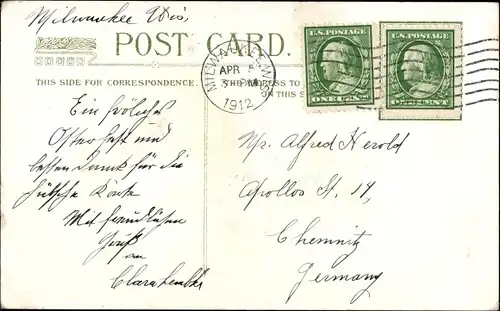 Milwaukee Wis,
POST CARD.
THIS SIDE FOR CORRESPONDENCE.
THE ADDRESS TO
ON THIS S
MILWAUKEE, WIS.
APR 5
1912
U.S. POSTAGE
ONE CENT
U.S. POSTAGE
CENT
Ein fröliches
Osterfest und
besten dank für die
hübsche Karte
Mit freundlichen
Gruß
an
Clara
Mr. Alfred Herold
Apollos St. 14,
Chemnitz
Germany